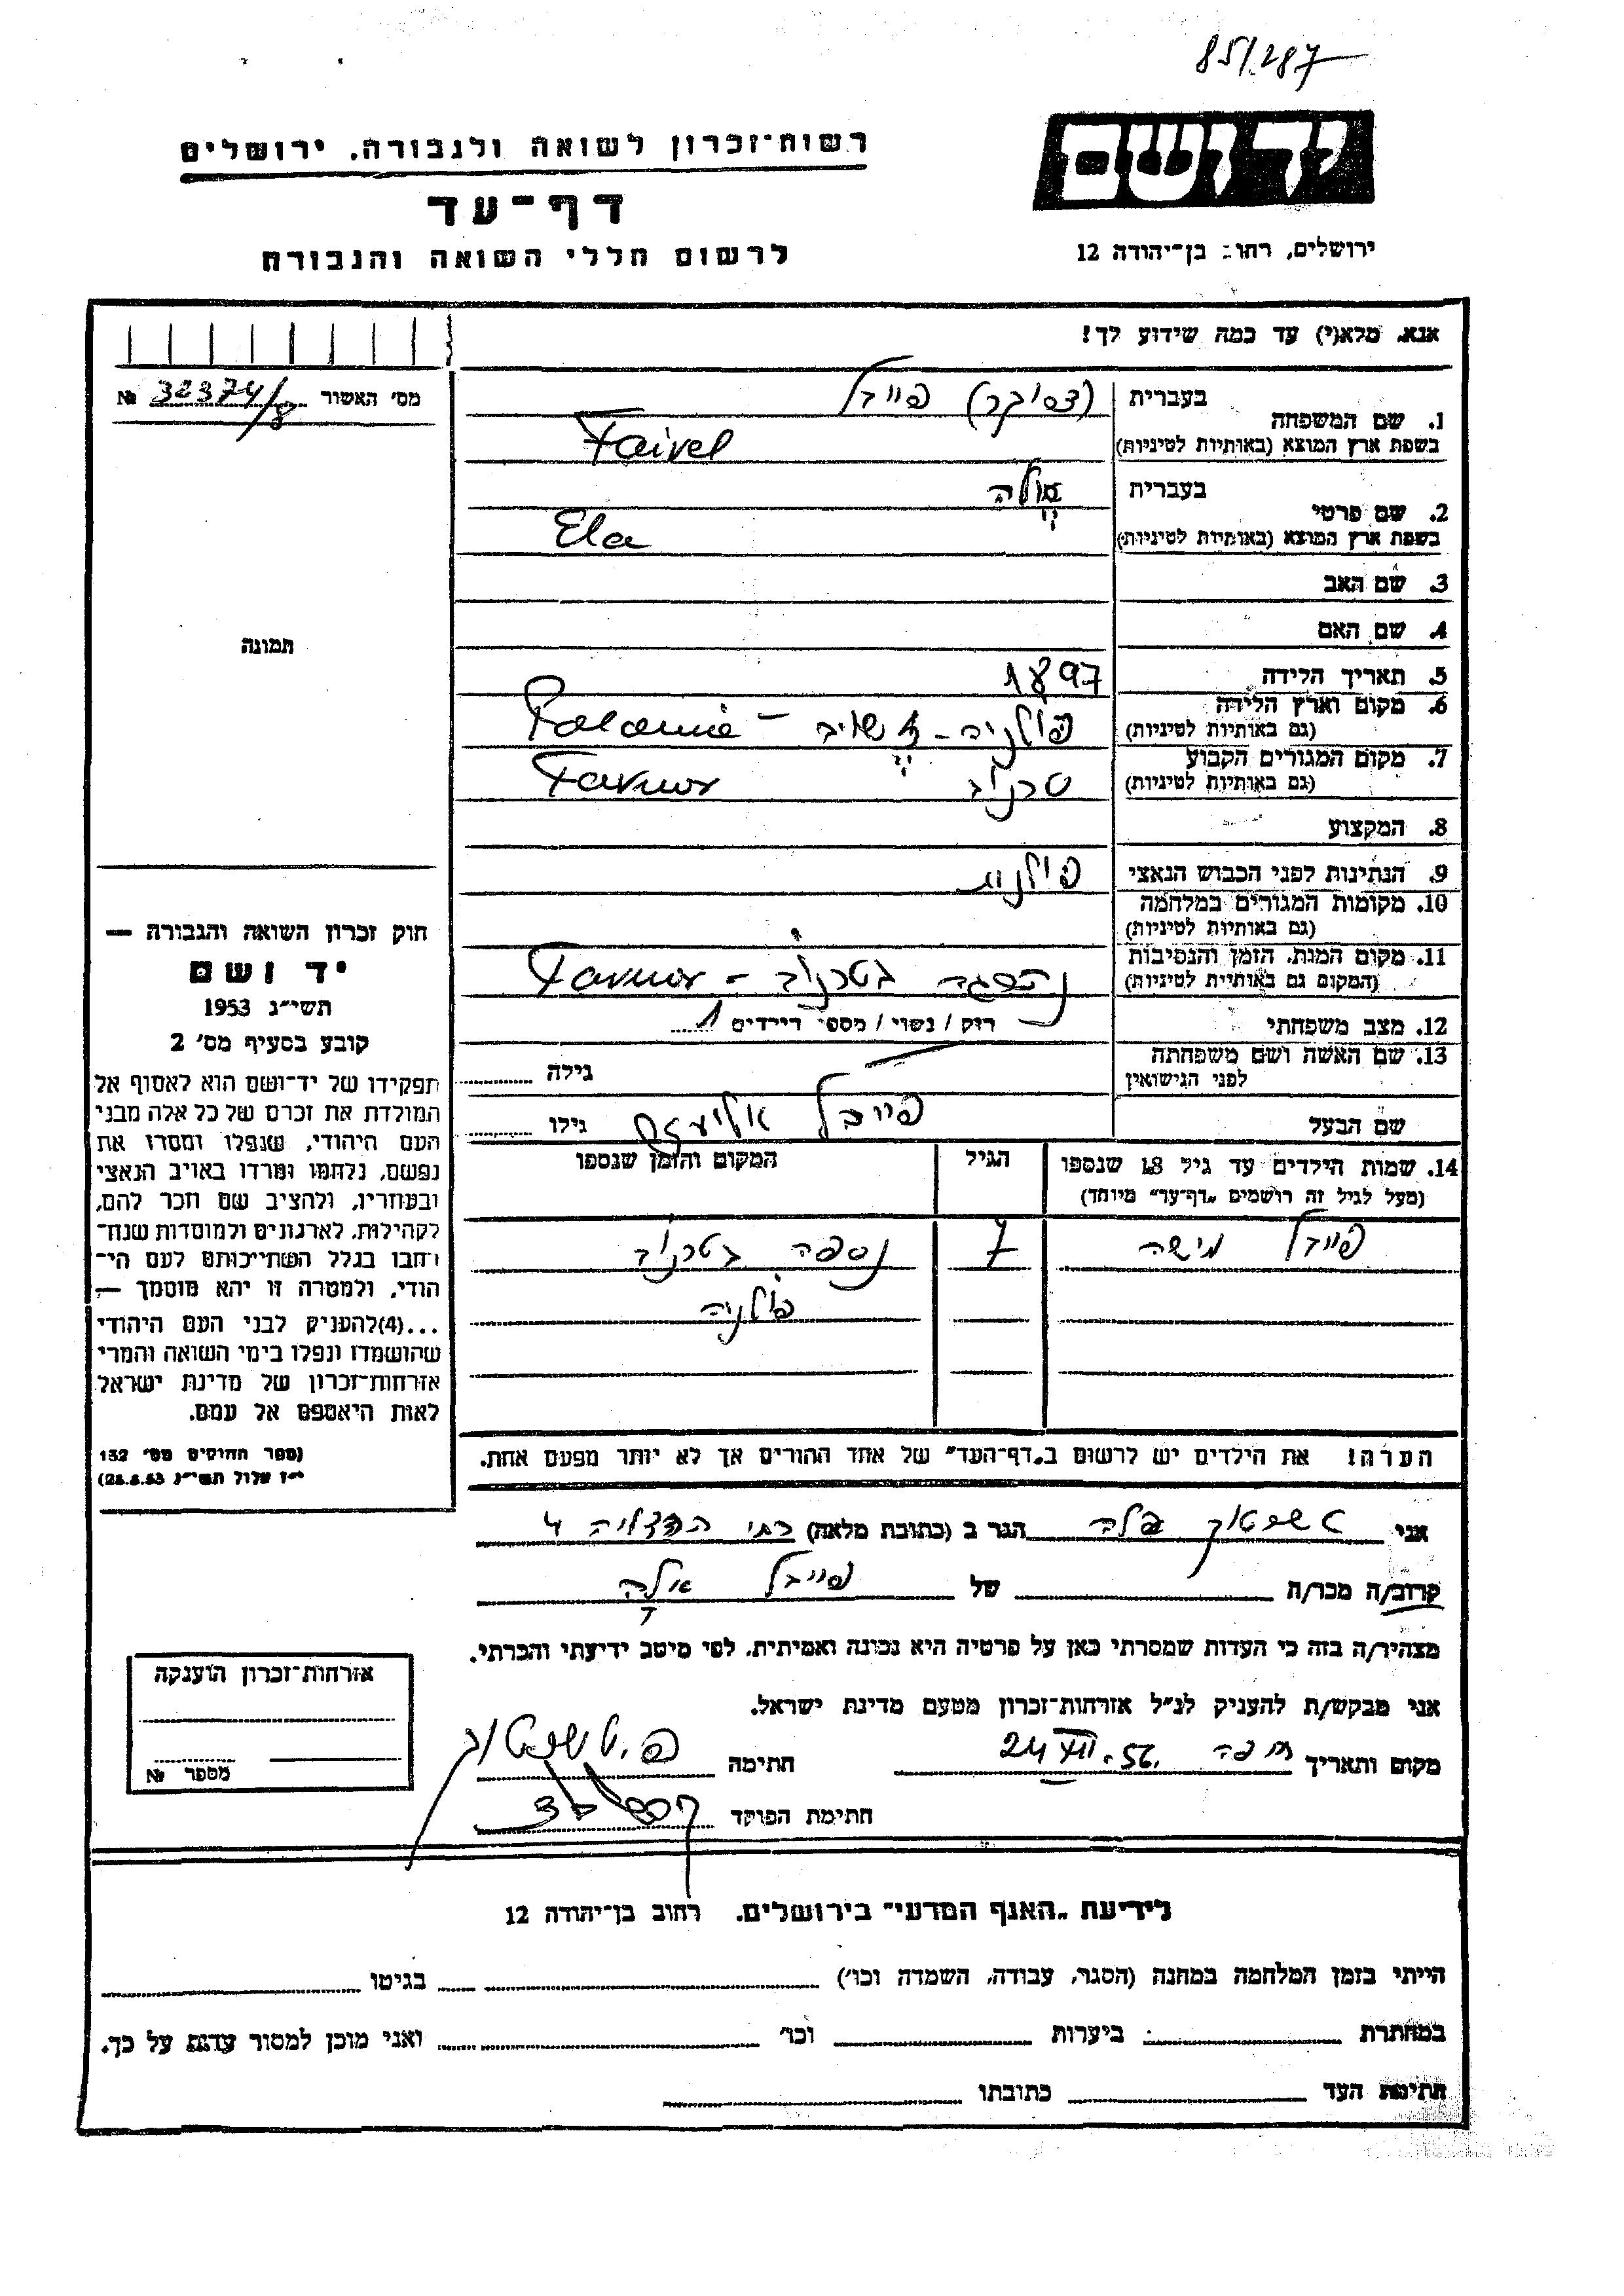 85/287
יד ושם
רשות־זכרון לשואה ולגבורה. ירושלים
דף־עד
לרשום חללי השואה והגבורה
ירושלים, רחוב בן־יהודה 12
אנא, מלא(י) עד כמה שידוע לך!
מס' האשור № 32374/8
תמונה
1. שם המשפחה
בעברית פייבל
בשפת ארץ המוצא (באותיות לטיניות) Faivel
2. שם פרטי
בעברית אלה
בשפת ארץ המוצא (באותיות לטיניות) Ela
3. שם האב
4. שם האם
5. תאריך הלידה 1897
6. מקום וארץ הלידה
(גם באותיות לטיניות) פולניה –
7. מקום המגורים הקבוע
(גם באותיות לטיניות) טרנוב Tarnow
8. המקצוע
9. הנתינות לפני הכבוש הנאצי פולנית
10. מקומות המגורים במלחמה
(גם באותיות לטיניות)
11. מקום המות, הזמן והנסיבות
(המקום גם באותיות לטיניות) נהרגה בטרנוב – Tarnow
12. מצב משפחתי רוק / נשוי / מספר הילדים 1
13. שם האשה ושם משפחתה
לפני הנישואין גילה
שם הבעל פייבל גילו
14. שמות הילדים עד גיל 18 שנספו
(מעל לגיל זה רושמים „דף־עד" מיוחד)
הגיל
המקום והזמן שנספו
פייבל מישה 7 נספה בטרנוב
פולניה
הערה! את הילדים יש לרשום ב„דף־העד" של אחד ההורים אך לא יותר מפעם אחת.
חוק זכרון השואה והגבורה —
יד ושם
תשי"ג 1953
קובע בסעיף מס' 2
תפקידו של יד־ושם הוא לאסוף אל
המולדת את זכרם של כל אלה מבני
העם היהודי, שנפלו ומסרו את
נפשם, נלחמו ומרדו באויב הנאצי
ובעוזריו, ולהציב שם וזכר להם,
לקהילות, לארגונים ולמוסדות שנח־
רחבו בגלל השתייכותם לעם הי־
הודי, ולמטרה זו יהא מוסמך —
...(4)להעניק לבני העם היהודי
שהושמדו ונפלו בימי השואה והמרי
אזרחות־זכרון של מדינת ישראל
לאות היאספם אל עמם.
(ספר החוקים מס' 132
י"ז אלול תשי"ג 28.8.53)
אני הגר ב (כתובת מלאה) 4
קרוב/ה מכר/ה של פייבל אלה
מצהיר/ה בזה כי העדות שמסרתי כאן על פרטיה היא נכונה ואמיתית, לפי מיטב ידיעתי והכרתי.
אני מבקש/ת להעניק לנ"ל אזרחות־זכרון מטעם מדינת ישראל.
מקום ותאריך חיפה 24 XII. 56. חתימה
חתימת הפוקד
אזרחות־זכרון הוענקה
מספר №
לידיעת „האגף המדעי" בירושלים. רחוב בן־יהודה 12
הייתי בזמן המלחמה במחנה (הסגר, עבודה, השמדה וכו') בגיטו
במחתרת ביערות וכו' ואני מוכן למסור עדות על כך.
חתימת העד כתובתו